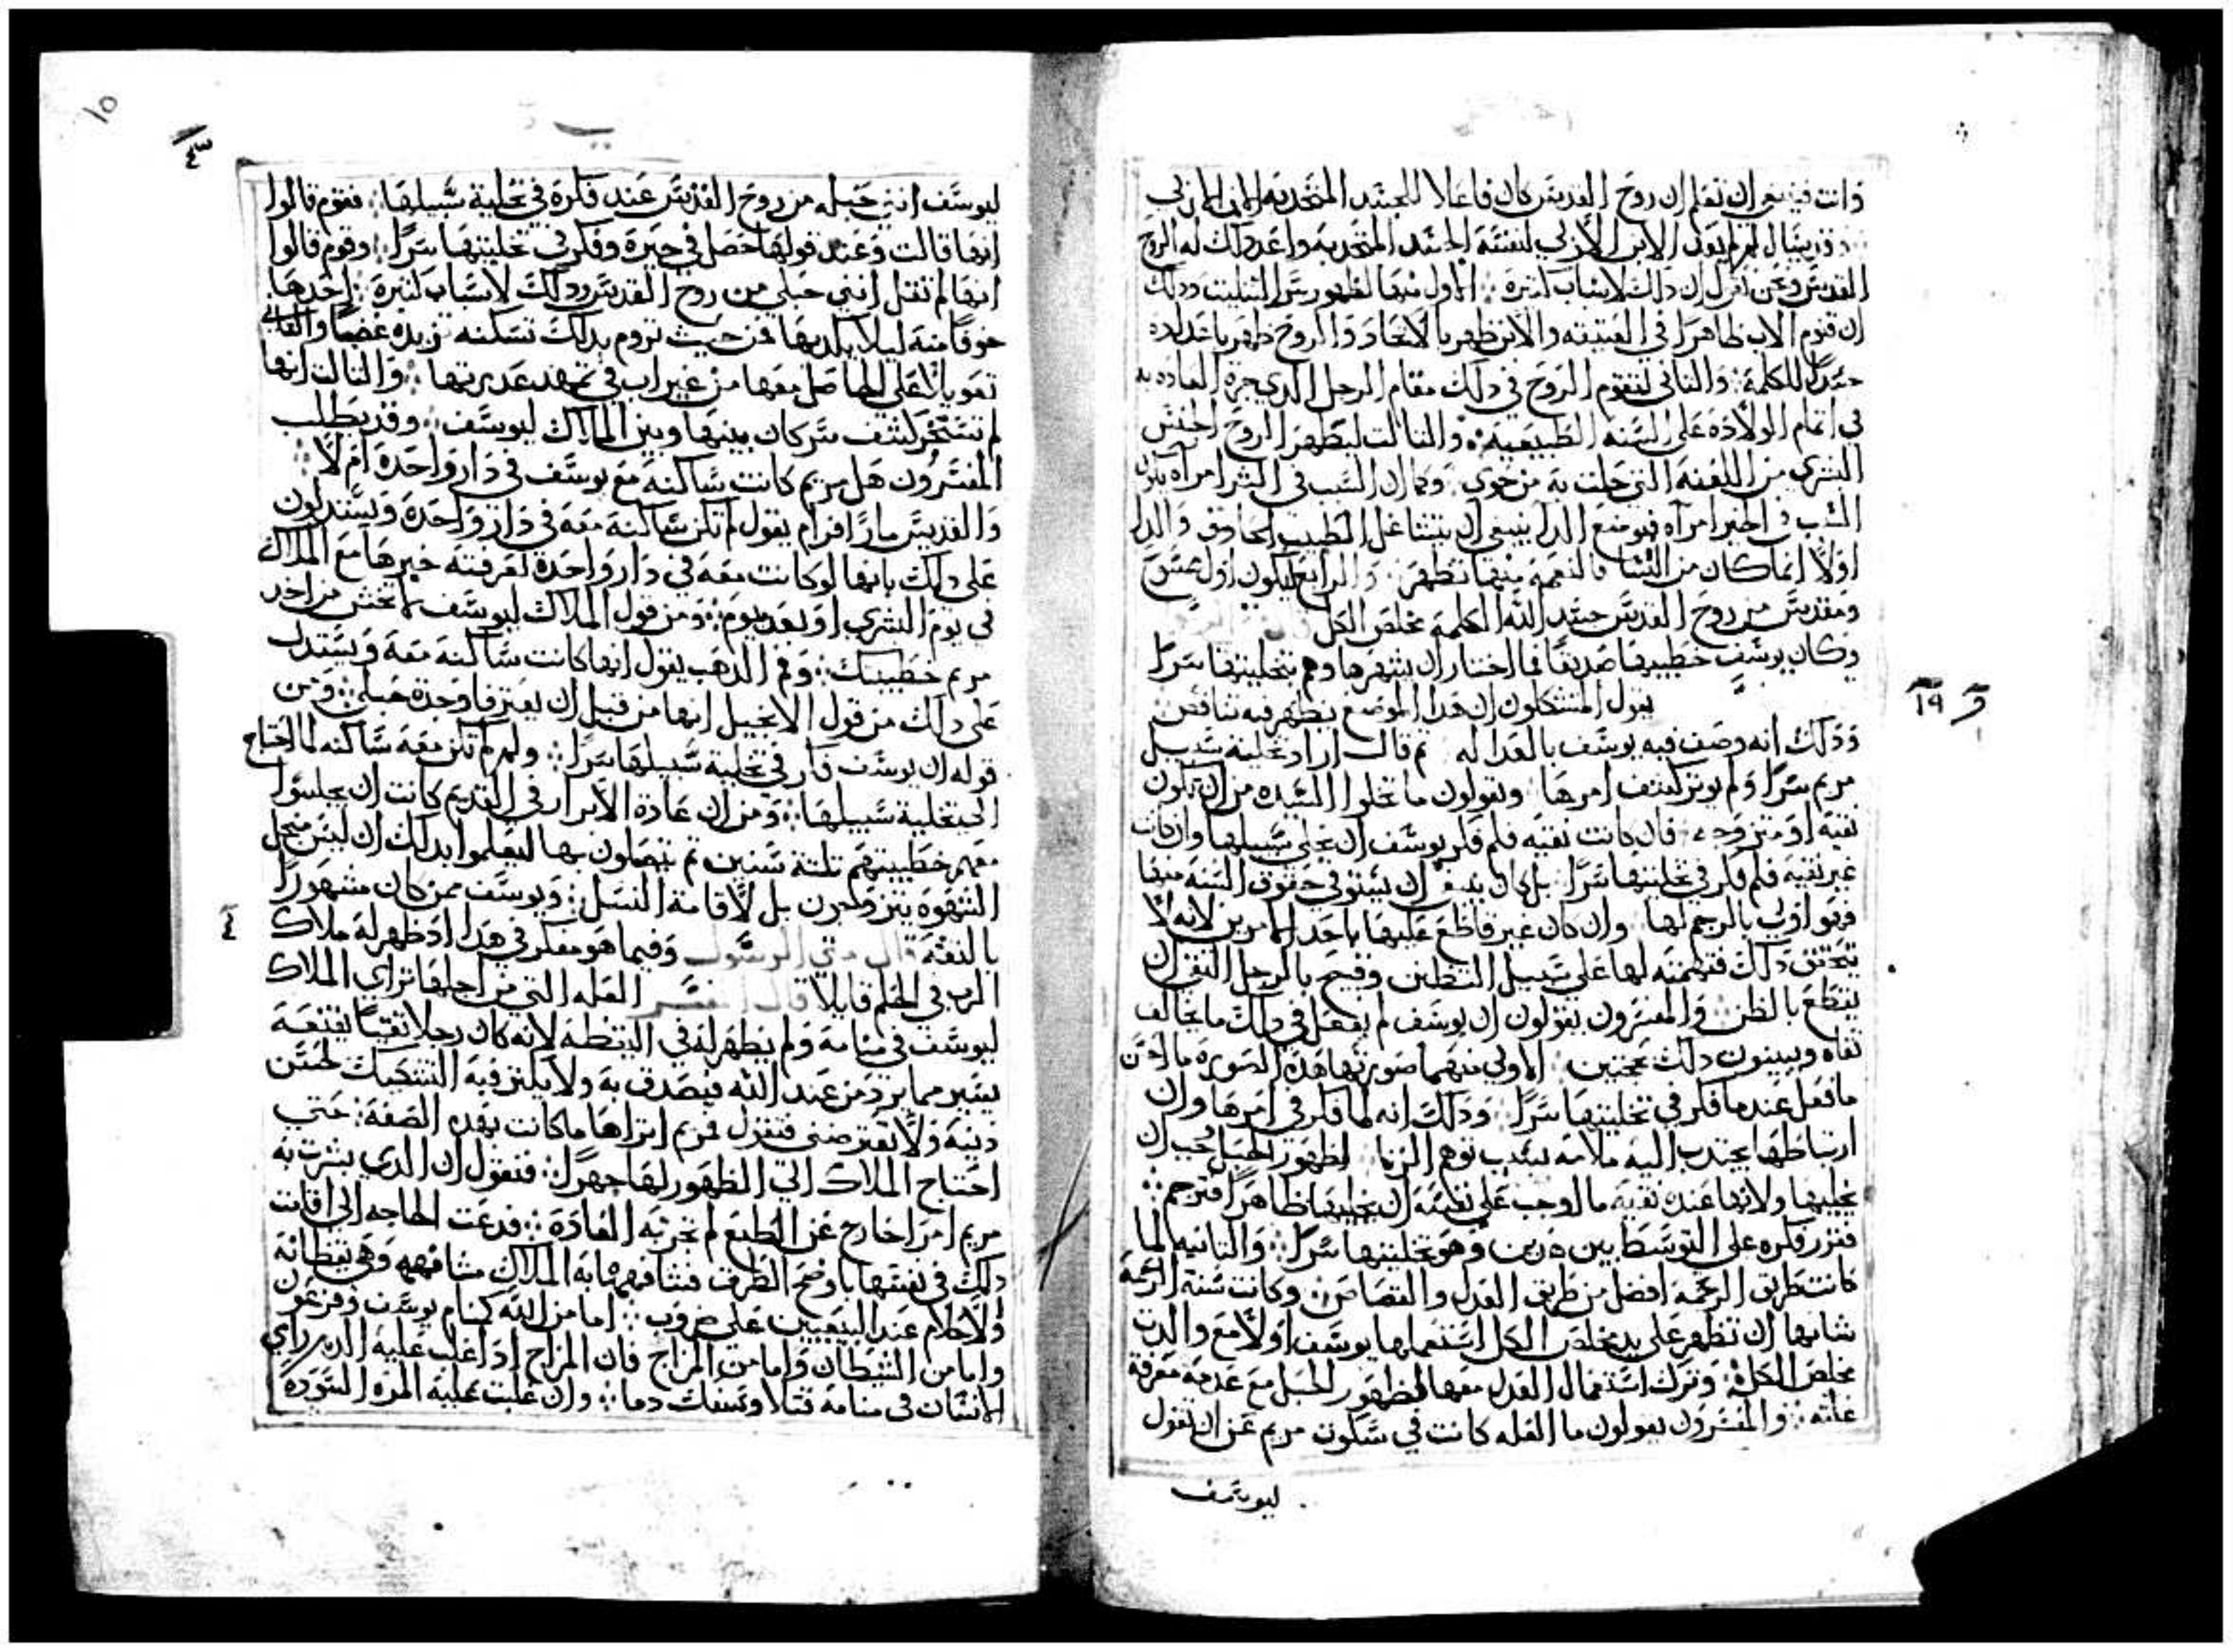 ذات فينبغي ان تعلم ان روح القدس كان فاعلا للجسد المتحد به الابن الازلي
وقد يسال لم لم يولد الابن الازلي لنفسه الجسد المتحد به واعد ذلك له الروح
القدس ونحن نقول ان ذلك لاسباب كثيرة الاول منها لظهور سر التثليث وذلك
ان قنوم الاب ظاهرا في العتيقه والابن ظهر بالاتحاد والروح ظهر باعداده
جسدا للكلمة والثاني لتقوم الروح في ذلك مقام الرجل الدي جرة العاده به
في اتمام الولادة على السنه الطبيعية والثالت ليطهر الروح الجنس
البشري من اللعنه التي حلت به من حوي وكما ان السبب في الشر امرآه يكون
السبب في الخير امرآه فموضع الدا ينبغي ان يتشاغل الطبيب الحادق والدا
اولا انما كان من النسا فالنعمه منها تظهر والرابع ليكون
ومقدس من روح القدس جسد الله الكلمة مخلص الكل
وكان يوسف خطيبها صديقا فما اختار ان يشهرها وهم بتخليتها سرا
يقول المتشككون ان هدا الموضع يظهر فيه تناقض
وذلك انه وصف فيه يوسف بالعداله ثم قال اراد تخلية سبيل
مريم سرا ولم يوثر كشف امرها ويقولون ما تخلوا السيده من ان تكون
نقيه او متزوجه فان كانت نقيه فلم فكر يوسف ان يخلي سبيلها وان كانت
غير نقيه فلم فكر في تخليتها سرا بل كان ينبغي ان يستوفي حقوق السنه منها
فهو اولي بالرجم لها وان كان غير قاطع عليها باحد الامرين لانه لا
يتحقق ذلك فتهمته لها على سبيل التظنن وقبيح بالرجل التقي ان
يقطع بالظن والمفسرون يقولون ان يوسف لم يفعل في ذلك ما يخالف
تقاه ويبينون ذلك بحجتين الاولي منهما صورتها هذه الصورة ما احسن
ما فعل عندما فكر في تخليتها سرا وذلك انه لما فكر في امرها وان
ارتباطها يجتدب اليه ملامة بسبب توهم الزنا لظهور الحبل يجب ان
يخليها ولانها عنده نقيه ما اوجب على نفسه ان يخليها ظاهرا فترجم
فتقرر فكره على التوسط بين هذين وهو تخليتها سرا والتانيه لما
كانت طريق الرحمه افضل من طريق العدل والقصاص وكانت سنة الرحمة
شانها ان تظهر على يد مخلص الكل استعملها يوسف اولا مع والدت
مخلص الكل وترك استعمال العدل معها لظهور الحبل مع عدمه معرفة
علته والمفسرون يقولون ما العله كانت في سكوت مريم عن ان تقول
ليوسف
و ١٩
١٥
٤
ليوسف انني حبله من روح القدس عند فكرة في تخلية سبيلها فقوم قالوا
انها قالت وعند قولها حصل في حيرة وفكر في تخليتها سرا وقوم قالوا
انها لم تقل انني حبلى من روح القدس وذلك لاسباب كثيرة احدها
خوفا منه ليلا يكدبها فمن حيث تروم بدلك تسكنه تزيده غضبا والتاني
تعويلا على الحاصل معها من غير اب في تمهد عدرتها والتالت انها
لم تستجز كشف سر كان بينها وبين الملاك ليوسف وقد يطلب
المفسرون هل مريم كانت ساكنة مع يوسف في دار واحدة ام لا
والقديس مار افرام يقول لم تكن ساكنة معه في دار واحدة ويستدلون
على ذلك بانها لو كانت معه في دار واحدة لعرفته خبرها مع الملاك
في يوم البشري او بعد بيوم ومن قول الملاك ليوسف لا تخش من اخد
مريم خطيبتك وفم الدهب يقول انها كانت ساكنة معه ويستدل
على ذلك من قول الانجيل انها من قبل ان يعترفا وجدة حبلي ومن
قوله ان يوسف فكر في تخلية سبيلها سرا ولو لم تكن معه ساكنه لما احتاج
الى تخلية سبيلها ومن ان عادة الابرار في القديم كانت ان يجلسوا
معهم خطيبتهم ثلثة سنين ثم يتصلون بها ليعلموا بدلك ان ليس من اجل
الشهوه يتزوجون بل لاقامة النسل ويوسف ممن كان مشهورا
بالثقة قال متي الرسول وفيما هو مفكر في هدا اد ظهر له ملاك
الرب في الحلم قايلا قال المفسر العله التي من اجلها تراي الملاك
ليوسف في منامه ولم يظهر له في اليقظه لانه كان رجلا تقيا يقنعه
يسير مما يرد من عند الله فيصدق به ولا يكثر فيه التشكيك لحسن
دينه ولا نعترضنى فنقول فمريم اتراها ما كانت بهده الصفة حتى
احتاج الملاك الى الظهور لها جهرا فنقول ان الدي بشرت به
مريم امر اخارج عن الطبع لم تجر به العادة فدعت الحاجه الى اقامت
دلك في نفسها باوضح الطرف فشافهها به الملاك مشافهه وهي يقظانة
والاحلام عند البيعيين على ضروب اما من الله كمنام يوسف وفرعون
واما من الشيطان واما من المزاج فان المزاج ادا غلب عليه الدم راي
الانسان في منامه قتلا وسفك دما وان غلبت عليه المره السوده
٤